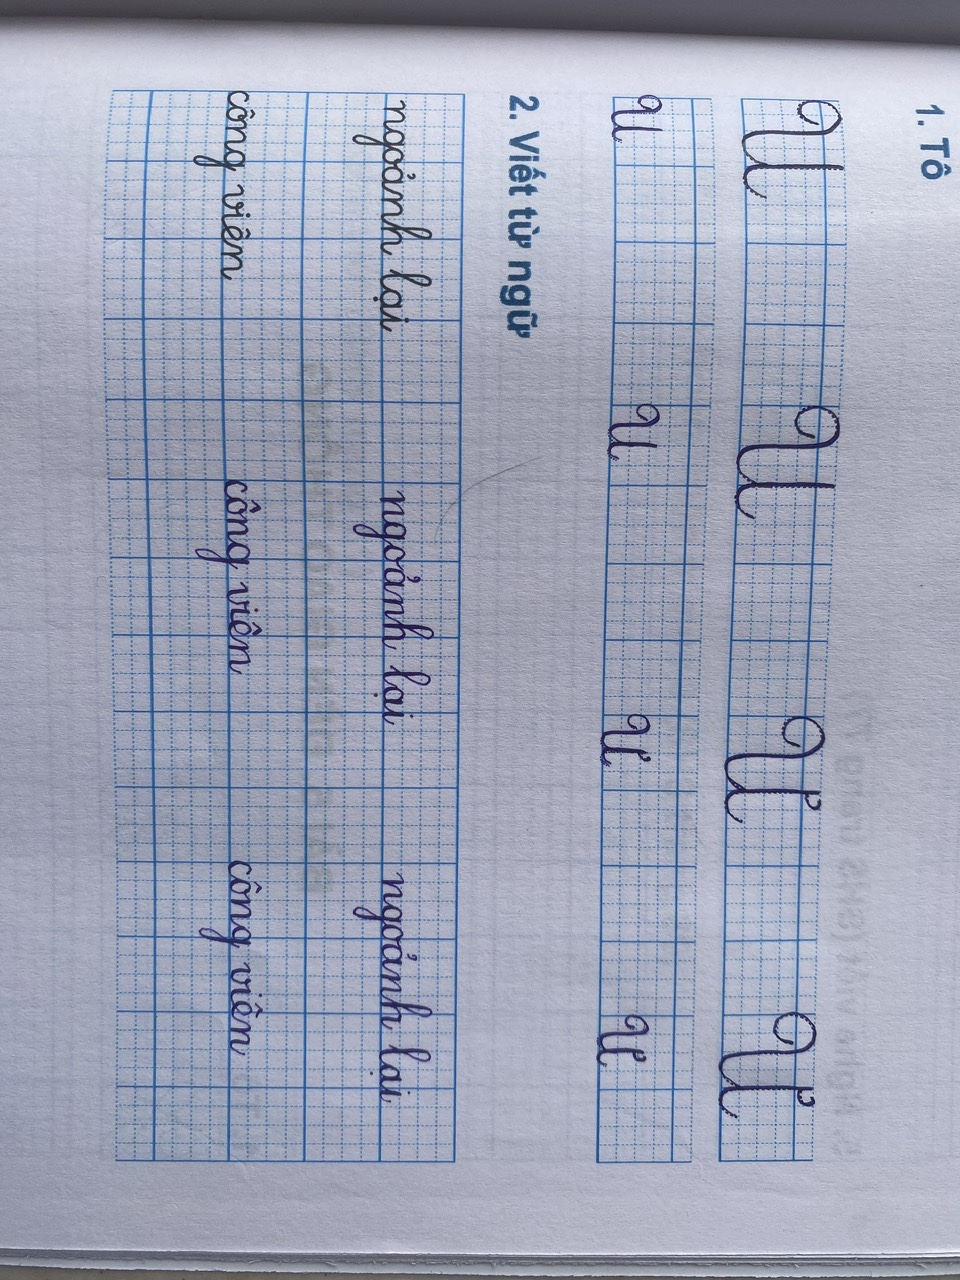 1. Tô
U U Ư Ư
U U Ư Ư
2. Viết từ ngữ
ngoảnh lại ngoảnh lại ngoảnh lại
công viên công viên công viên